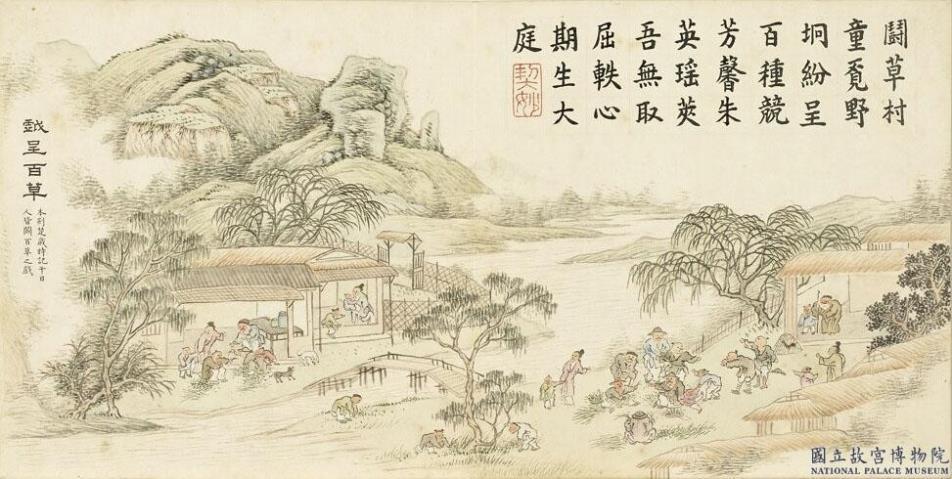 鬪草村
童覓野
坰紛呈
百種競
芳馨朱
英瑤莢
吾無取
屈軼心
期生大
庭
契妙
戲呈百草
本荆楚歲時記午日
人皆鬪百草之戲
國立故宮博物院
NATIONAL PALACE MUSEUM